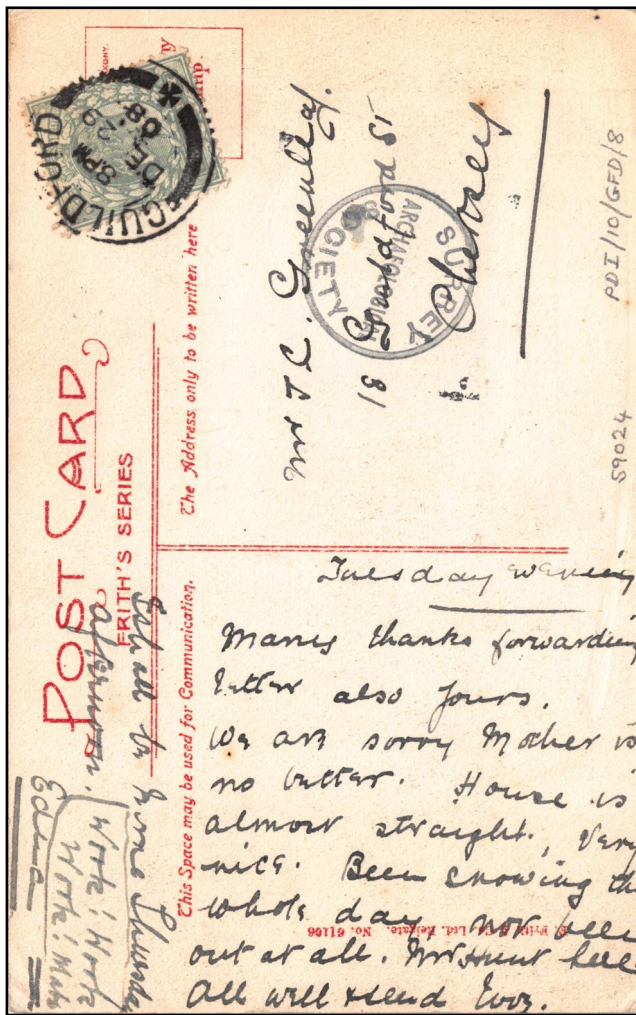 POST CARD
FRITH'S SERIES
This Space may be used for Communication.
The Address only to be written here
GUILDFORD
8 PM
DE 29
08
SURREY
ARCHAEOLOGICAL
SOCIETY
Mr T C. Greenfield.
18 Guildford St
Chertsey
PDI/10/GFD/8
S9024
Tuesday evening
Many thanks forwarding
letter also yours.
We are sorry Mother is
no better. House is
almost straight, Very
nice. Been snowing the
whole day, not been
out at all. Mr Hunt here
All well & send love.
Frith & Co. Ltd. Reigate. No. 61106
to home Thursday
afternoon. Work! Work
Work! Work
Edina